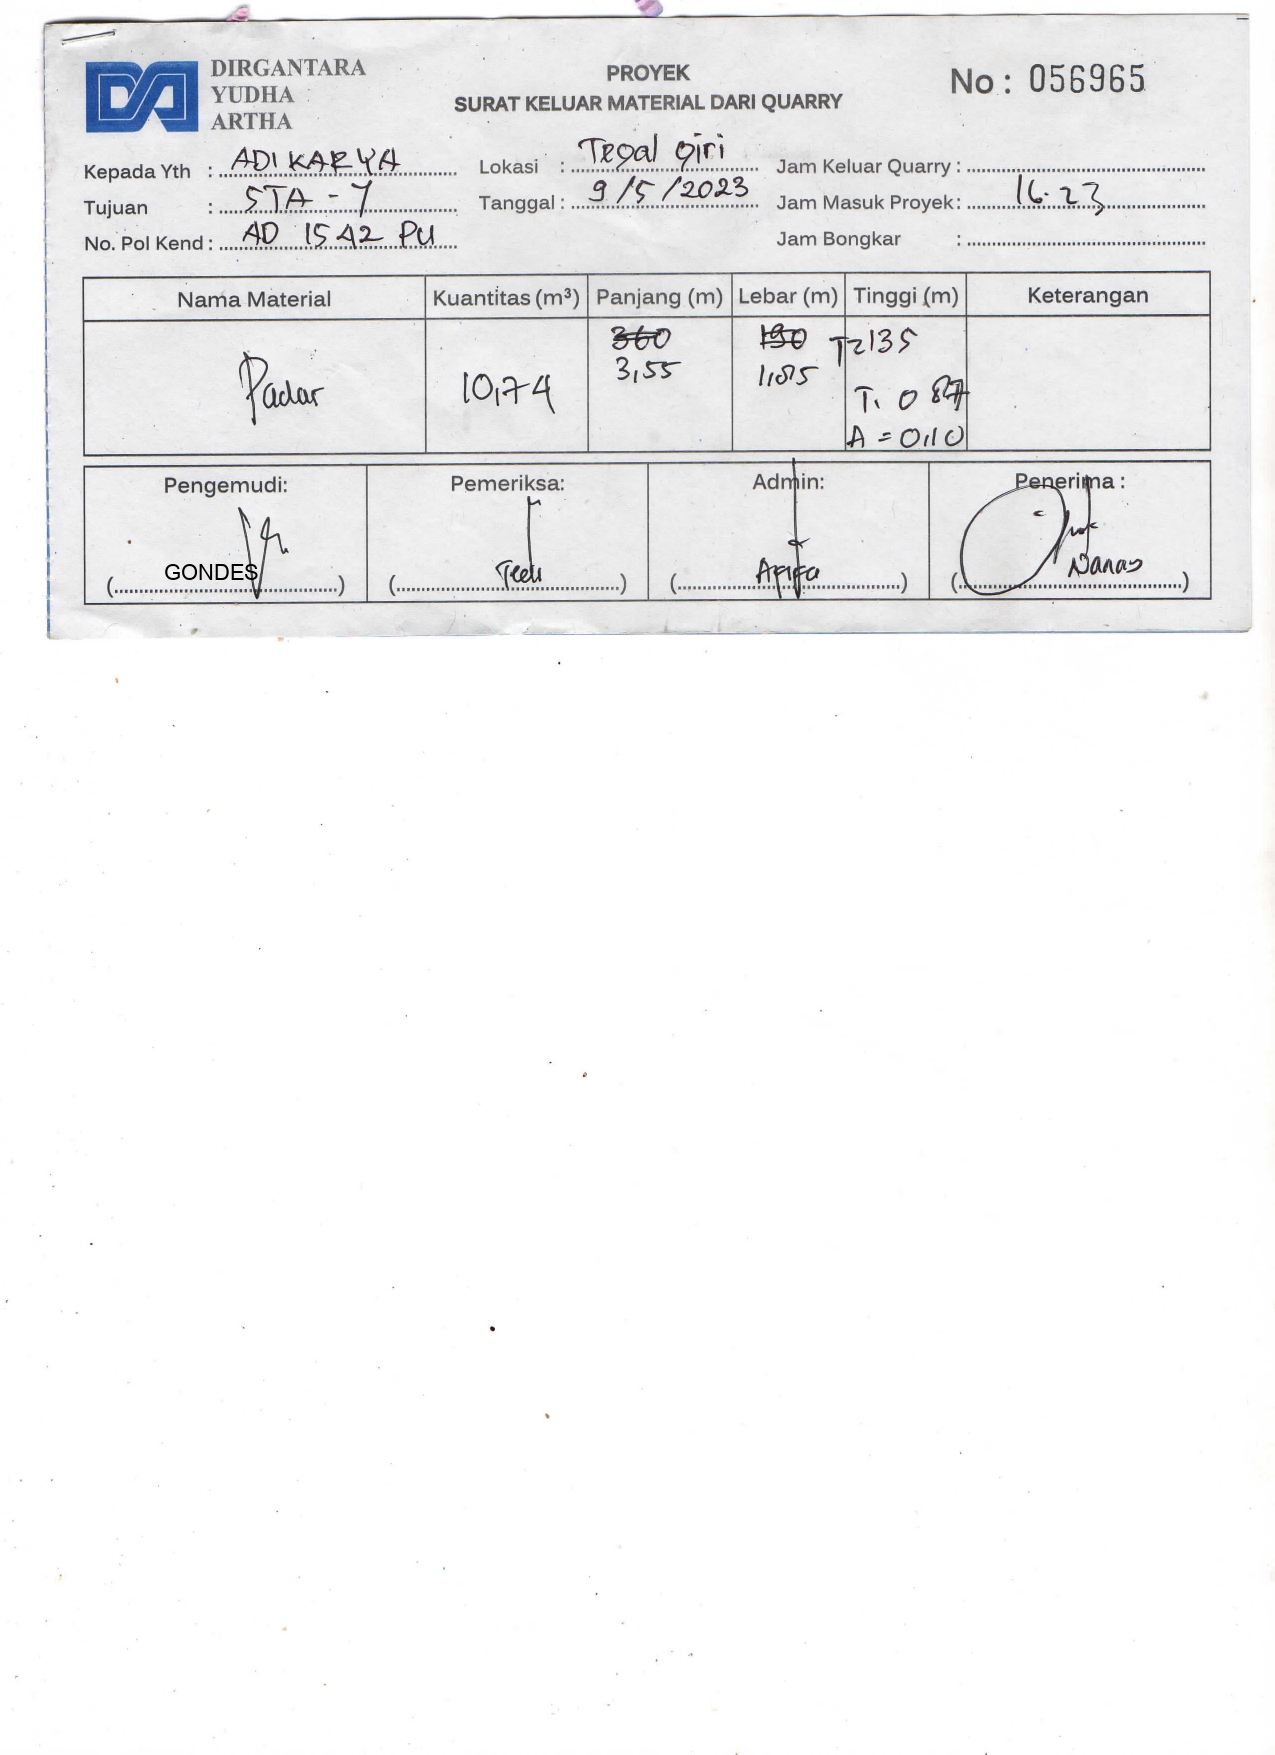 DIRGANTARA
YUDHA
ARTHA
PROYEK
SURAT KELUAR MATERIAL DARI QUARRY
No : 056965
Kepada Yth : ADI KARYA
Tujuan : STA - 7
No. Pol Kend : AD 1542 PU
Lokasi : Tegal giri
Tanggal : 9/5/2023
Jam Keluar Quarry :
Jam Masuk Proyek : 16.23
Jam Bongkar :
Nama Material Kuantitas (m³) Panjang (m) Lebar (m) Tinggi (m) Keterangan
Padar 10,74
360 190
3,55
T2135
T. 0 87
A = 0,10
Pengemudi: Pemeriksa: Admin: Penerima :
(GONDES) (Tedi) (Afifa) (Danas)